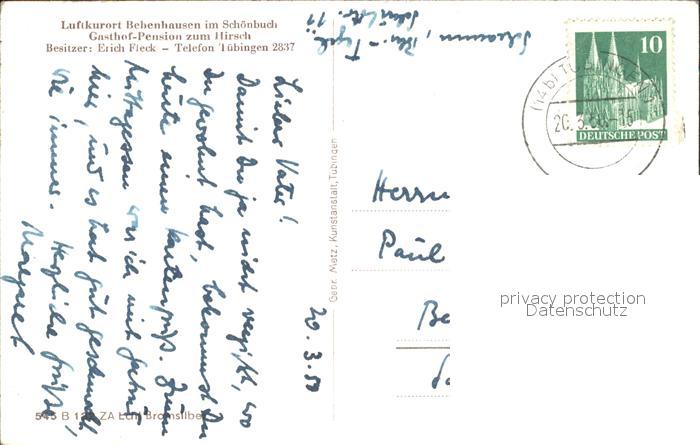 Luftkurort Bebenhausen im Schönbuch
Gasthof-Pension zum Hirsch
Besitzer: Erich Fleck – Telefon Tübingen 2837
Lieber Vater!
Damit Du ja nicht vergißt, wo
Du gewohnt hast, bekommst Du
heute einen Kartengruß. Zum
Mittagessen war ich mit
hier, und es hat gut geschmeckt
wie immer. Herzliche Grüße
Margaret
20.3.50
Gebr. Metz, Kunstanstalt, Tübingen
10
DEUTSCHE POST
Herrn
Paul
privacy protection
Datenschutz